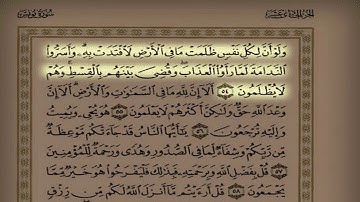 سورة يونس الجزء الحادي عشر
وَلَوْ أَنَّ لِكُلِّ نَفْسٍ ظَلَمَتْ مَا فِي الْأَرْضِ لَافْتَدَتْ بِهِ ۗ وَأَسَرُّوا
النَّدَامَةَ لَمَّا رَأَوُا الْعَذَابَ ۖ وَقُضِيَ بَيْنَهُم بِالْقِسْطِ ۚ وَهُمْ
لَا يُظْلَمُونَ ٥٤ أَلَا إِنَّ لِلَّهِ مَا فِي السَّمَاوَاتِ وَالْأَرْضِ ۗ أَلَا إِنَّ
وَعْدَ اللَّهِ حَقٌّ وَلَٰكِنَّ أَكْثَرَهُمْ لَا يَعْلَمُونَ ٥٥ هُوَ يُحْيِي وَيُمِيتُ
وَإِلَيْهِ تُرْجَعُونَ ٥٦ يَا أَيُّهَا النَّاسُ قَدْ جَاءَتْكُم مَّوْعِظَةٌ
مِّن رَّبِّكُمْ وَشِفَاءٌ لِّمَا فِي الصُّدُورِ وَهُدًى وَرَحْمَةٌ لِّلْمُؤْمِنِينَ
٥٧ قُلْ بِفَضْلِ اللَّهِ وَبِرَحْمَتِهِ فَبِذَٰلِكَ فَلْيَفْرَحُوا هُوَ خَيْرٌ مِّمَّا
يَجْمَعُونَ ٥٨ قُلْ أَرَأَيْتُم مَّا أَنزَلَ اللَّهُ لَكُم مِّن رِّزْقٍ